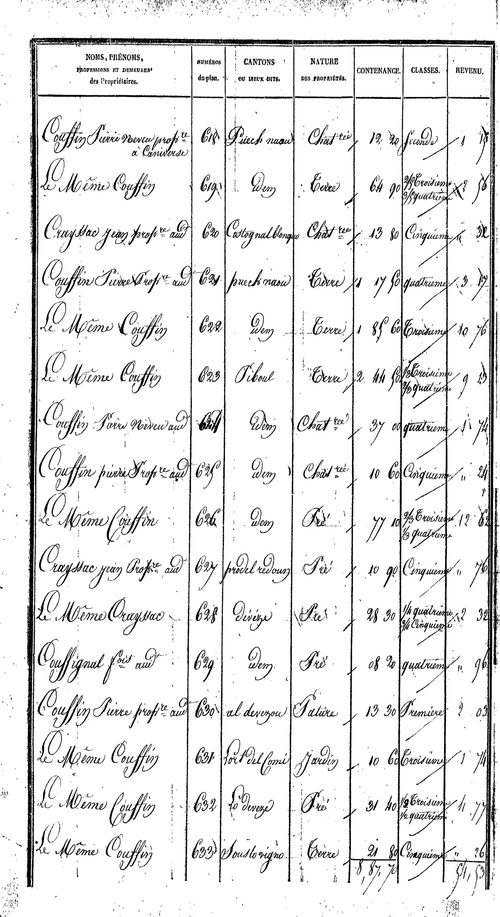 NOMS, PRÉNOMS, PROFESSIONS ET DEMEURES des Propriétaires. NUMÉROS du plan. CANTONS OU LIEUX DITS. NATURE DES PROPRIÉTÉS. CONTENANCE. CLASSES. REVENU.
Couffin Pierre neveu prop.re à Caniverse 618 Puech naou Chat.rée 12 20 Seconde 1
Le Même Couffin 619 idem Terre 64 90 Troisieme quatrieme 2 56
Crayssac jean prop.re aud 620 Chat.rée 13 80 Cinquieme " 32
Couffin Pierre Prop.re aud 621 puech naou Terre 1 17 50 quatrieme 3 17
Le Même Couffin 622 idem Terre 1 85 60 Troisieme 10 76
Le Même Couffin 623 Piboul Terre 2 44 50 Troisieme quatrieme 9 23
Couffin Pierre Neveu aud 624 idem Chat.rée 37 00 quatrieme 1 74
Couffin pierre Prop.re aud 625 idem Chat.rée 10 60 Cinquieme " 24
Le Même Couffin 626 idem Pré 77 10 2/3 Troisieme 1/3 quatrieme 12 62
Crayssac jean Prop.re aud 627 pradel redoun Pré 10 90 Cinquieme " 76
Le Même Crayssac 628 devèze Pré 28 30 1/4 quatrieme 3/4 Cinquieme 2 32
Couffignal f.ois aud 629 idem Pré 08 20 quatrieme " 96
Couffin Pierre prop.re aud 630 al devezou Pature 13 30 Premiere 2 03
Le Même Couffin 631 Jardin 10 60 Troisieme 1 74
Le Même Couffin 632 Lo devèze Pré 31 40 1/2 Troisieme 1/2 quatrieme 4 77
Le Même Couffin 633 Terre 21 80 Cinquieme " 26
8, 87, 70 54, 53